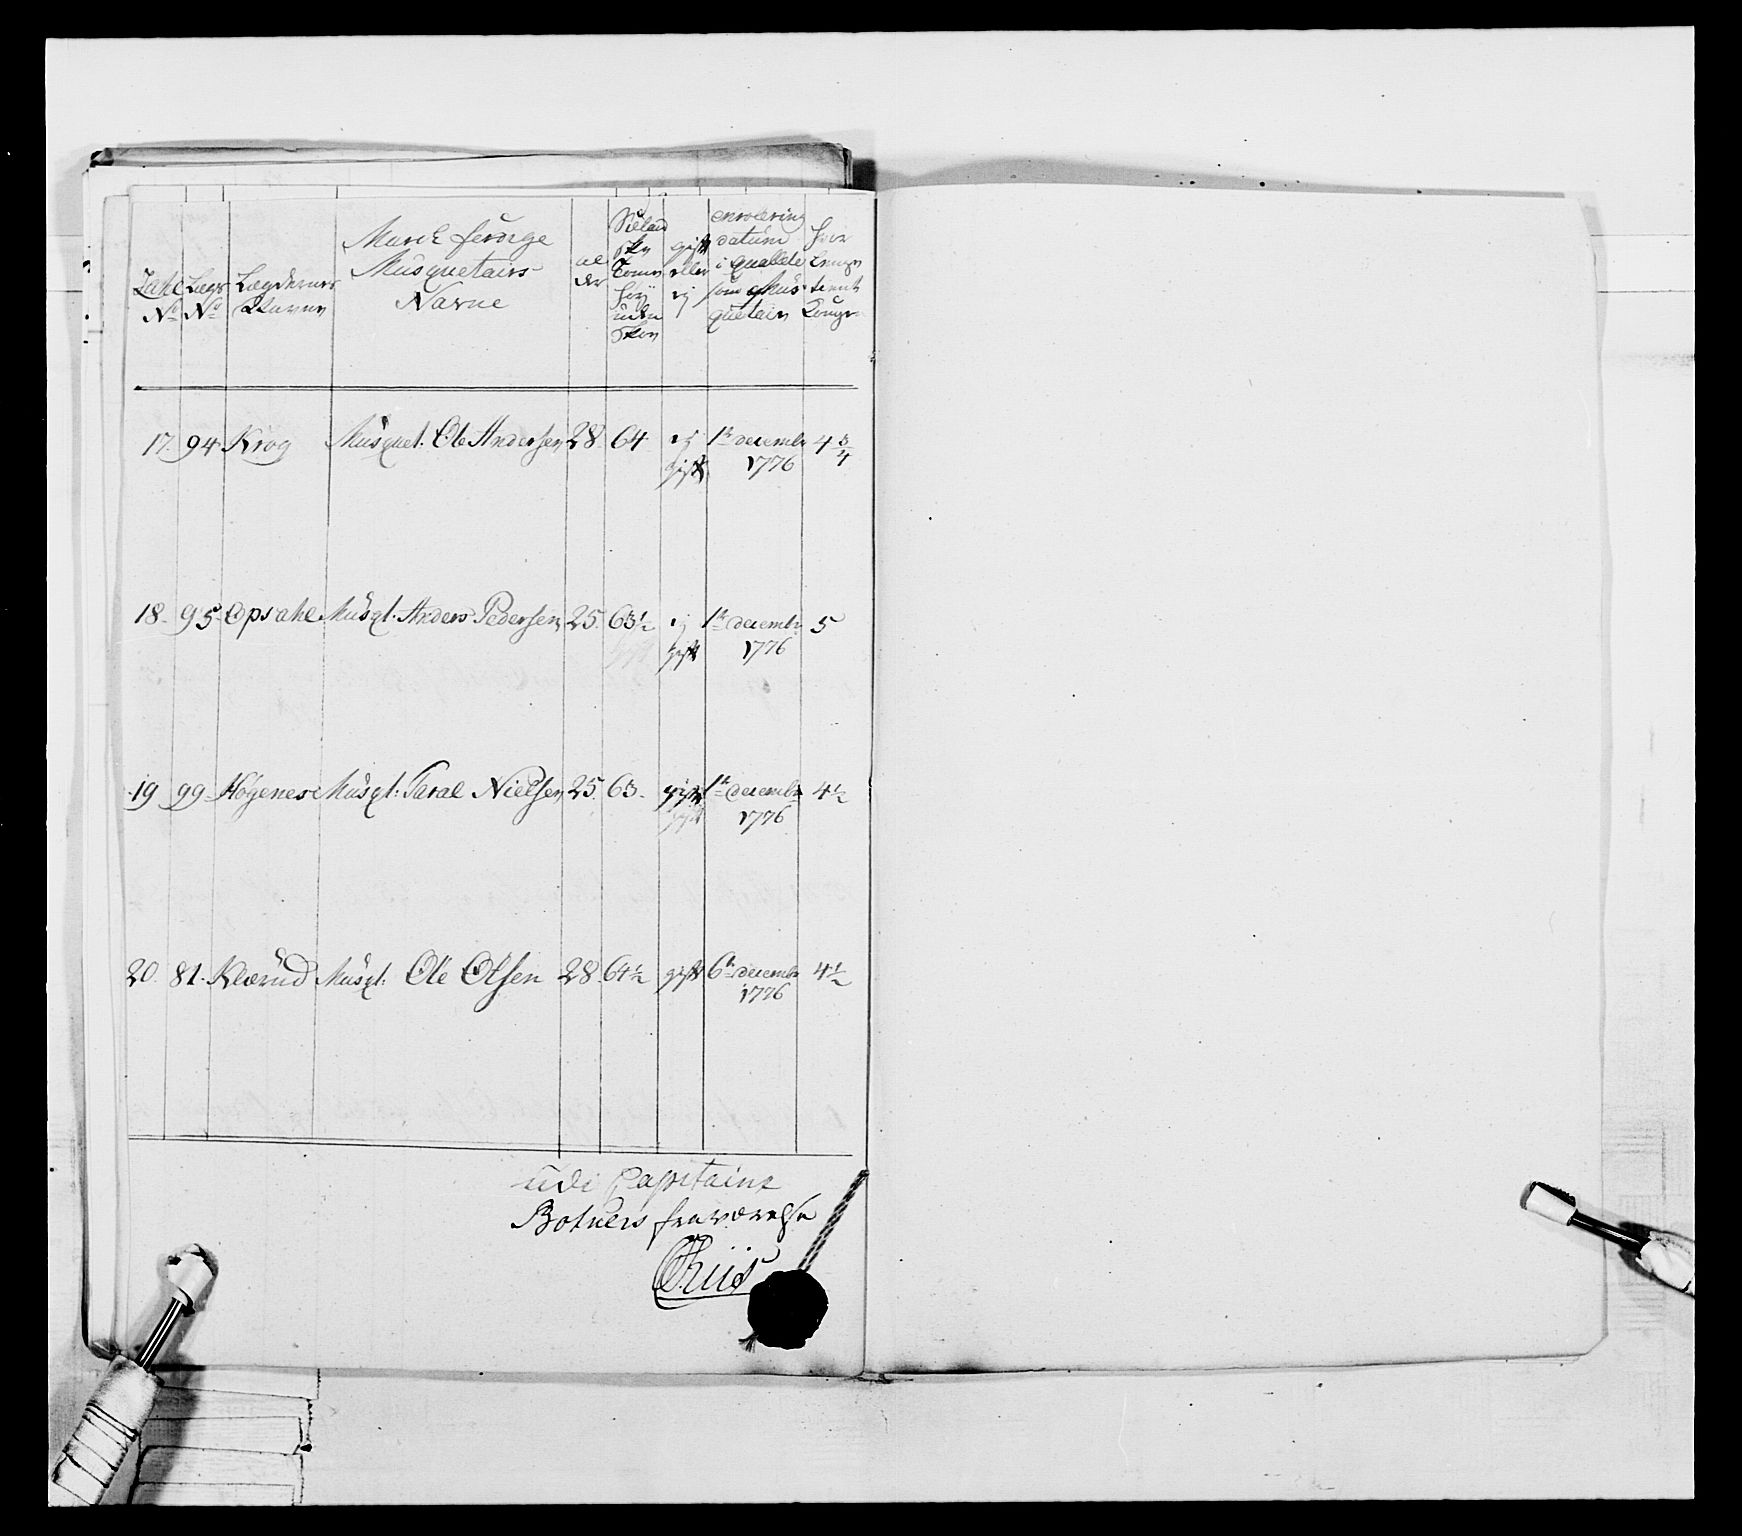 Tahl No
Lægs No
Lægdernes Navne
March ferdige Musquetairs Navne
al der
Sieland ske Tomer høÿ uden Skoe
gift eller ej
enrolering datum i qualete som Mus quetair
17. 94 Krog Musquet. Ole Andersen 28. 64 ej gift 1te decembr 1776 4 3/4
18. 95. Opsahl Musqt. Anders Pedersen 25. 63½ ej gift 1te decembr 1776 5
19 99 Høgenes Musqt. Taral Nielsen 25. 63. gift 1te decembr 1776 4½
20. 81. Klærud Musqt. Ole Olsen 28 64½ gift 6te decembr 1776 4½
udi Capitaine
Botners fraværelse
Riis